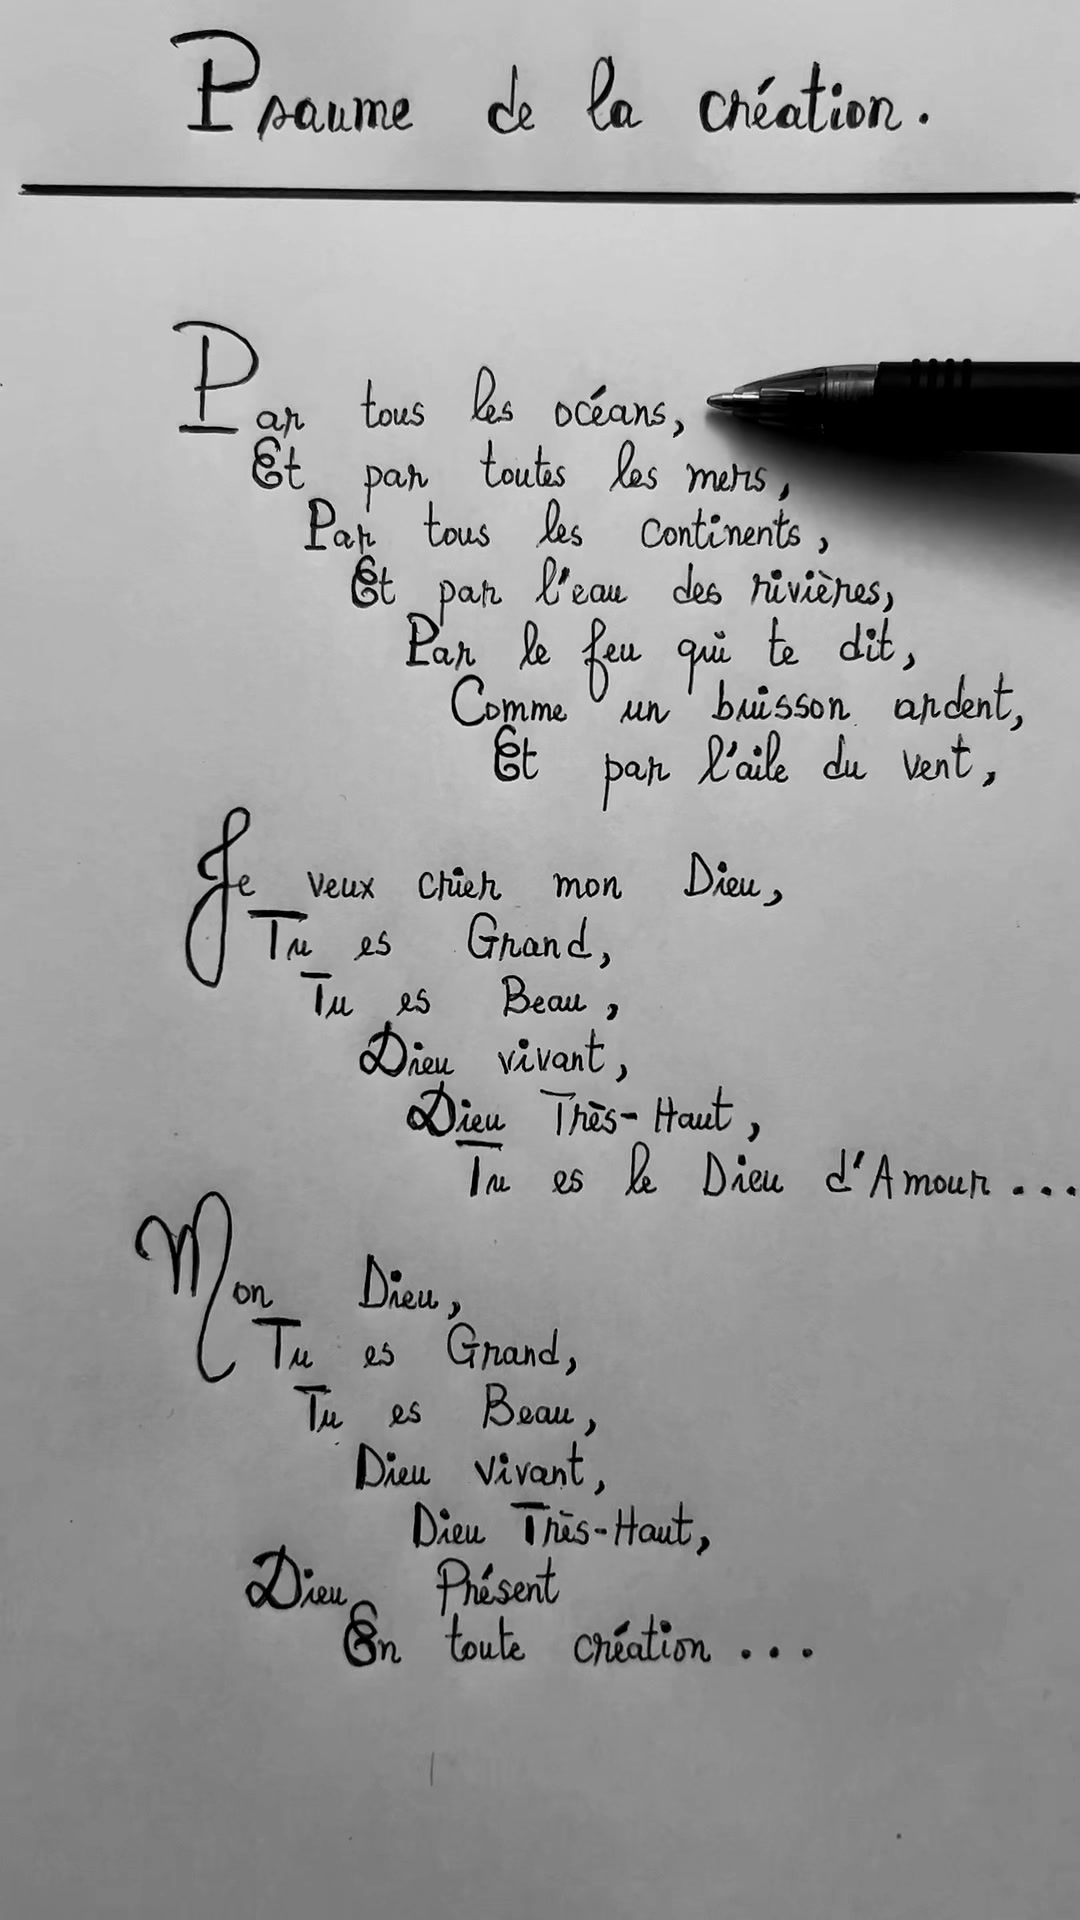 Psaume de la création.
Par tous les océans,
Et par toutes les mers,
Par tous les continents,
Et par l'eau des rivières,
Par le feu qui te dit,
Comme un buisson ardent,
Et par l'aile du vent,
Je veux crier mon Dieu,
Tu es Grand,
Tu es Beau,
Dieu vivant,
Dieu Très-Haut,
Tu es le Dieu d'Amour...
Mon Dieu,
Tu es Grand,
Tu es Beau,
Dieu vivant,
Dieu Très-Haut,
Dieu Présent
En toute création...